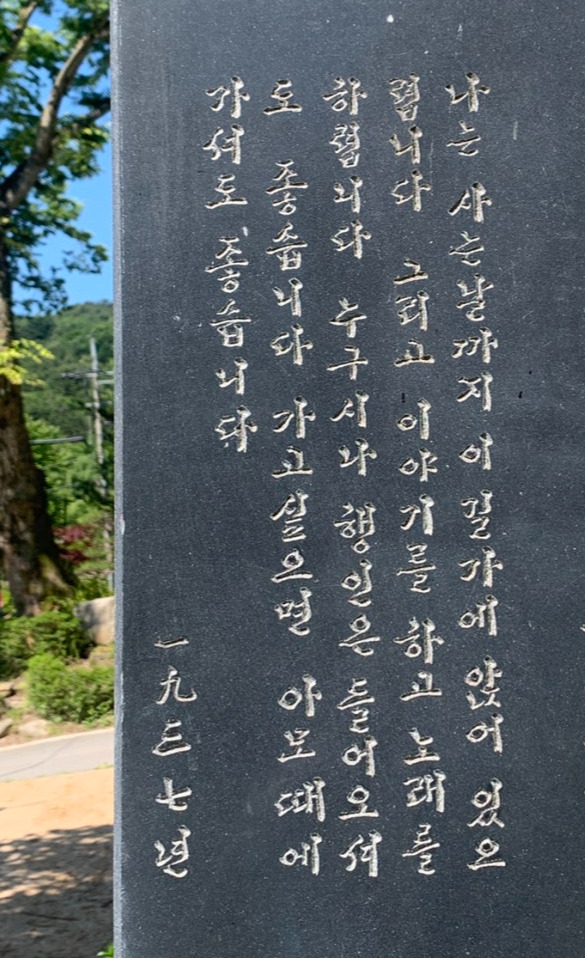 나는 사는날까지 이 길가에 앉어 있으
렵니다 그리고 이야기를 하고 노래를
하렵니다 누구시나 행인은 들어오셔
도 좋습니다 가고싶으면 아모때에
가셔도 좋습니다
一九三七년